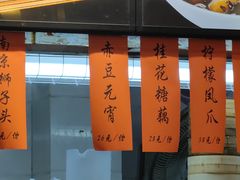 南京狮子头
元/份
赤豆元宵
26元/份
桂花糖藕
28元/份
柠檬凤爪
38元/份